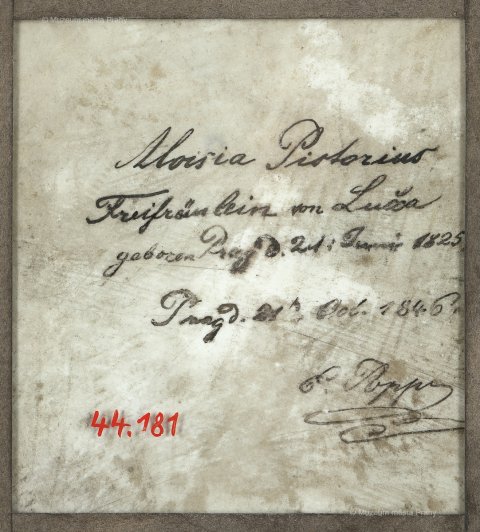 © Muzeum města Prahy
Aloisia Pistorius
Freifräulein von Lučča
geboren Prag d. 21: Juni 1825.
Prag d. 21t. Oct. 1846.
Popp
44.181
© Muzeum města Prahy